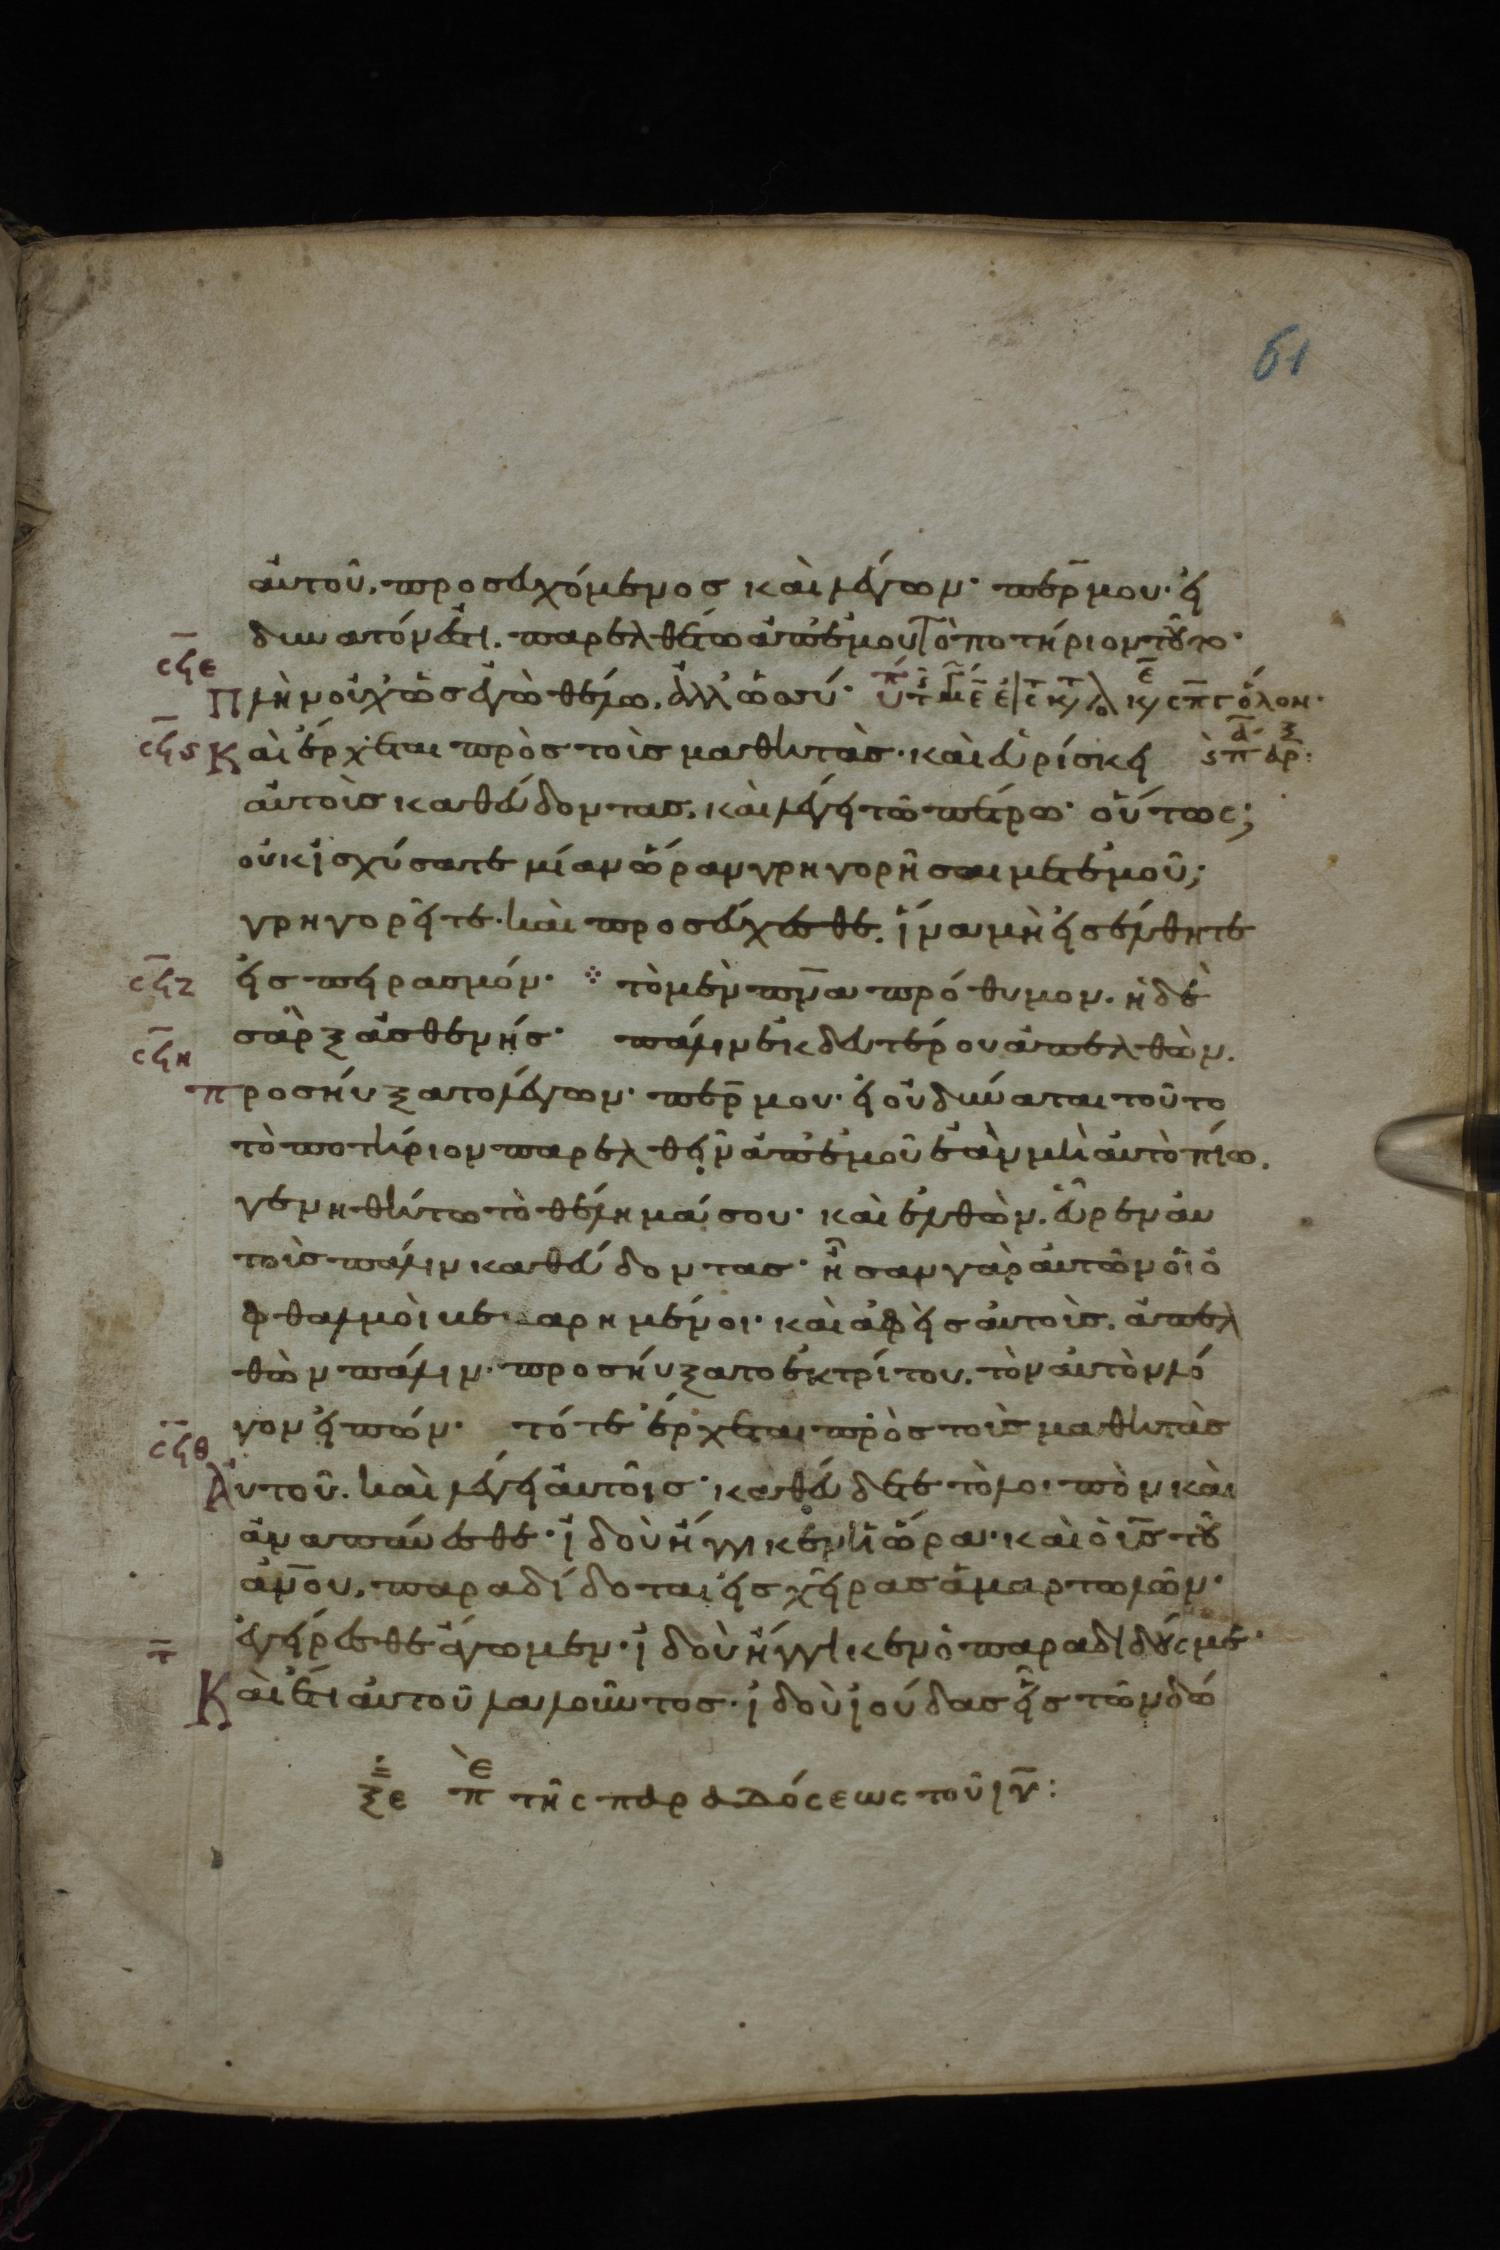 61
αὐτοῦ, προσευχόμενος καὶ λέγων· περ̅ μου· εἰ
δυνατόν ἐστι. παρελθέτω ἀπ' ἐμοῦ τὸ ποτήριον τοῦτο·
σϟε
Πλὴν οὐχ ὡς ἐγὼ θέλω. ἀλλ' ὡς σύ·
σϟς Καὶ ἔρχεται πρὸς τοὺς μαθητὰς· καὶ εὑρίσκει
αὐτοὺς καθεύδοντας. καὶ λέγει τῶ πέτρω· οὕτως;
οὐκ ἰσχύσατε μίαν ὥραν γρηγορῆσαι μετ' ἐμοῦ;
γρηγορεῖτε· καὶ προσεύχεσθε. ἵνα μὴ εἰσέλθητε
σϟζ εἰς πειρασμόν· τὸ μὲν πν̅α πρόθυμον. ἡ δὲ
σϟη σὰρξ ἀσθενής· πάλιν ἐκ δευτέρου ἀπελθὼν.
προσηύξατο λέγων· περ̅ μου· εἰ οὐ δύναται τοῦτο
τὸ ποτήριον παρελθεῖν ἀπ' ἐμοῦ ἐὰν μὴ αὐτὸ πίω.
γενηθήτω τὸ θέλημά σου· καὶ ἐλθὼν. εὗρεν αὐ
τοὺς πάλιν καθεύδοντας· ἦσαν γὰρ αὐτῶν οἱ ὀ
φθαλμοὶ βεβαρημένοι· καὶ ἀφεὶς αὐτοὺς. ἀπελ
θὼν πάλιν· προσηύξατο ἐκ τρίτου. τὸν αὐτὸν λό
γον εἰπών· τότε ἔρχεται πρὸς τοὺς μαθητὰς
σϟθ
Αὐτοῦ. καὶ λέγει αὐτοῖς· καθεύδετε τὸ λοιπὸν καὶ
ἀναπαύεσθε· ἰδοὺ ἤγγικεν ἡ ὥρα· καὶ ὁ υἱ̅ς τοῦ
ἀν̅ου, παραδίδοται εἰς χεῖρας ἁμαρτωλῶν·
ἐγείρεσθε ἄγωμεν· ἰδοὺ ἤγγικεν ὁ παραδιδούς με·
τ̅
Καὶ ἔτι αὐτοῦ λαλοῦντος· ἰδοὺ ἰούδας εἷς τῶν δώ
ξε πε τῆς παραδόσεως τοῦ ιυ̅: